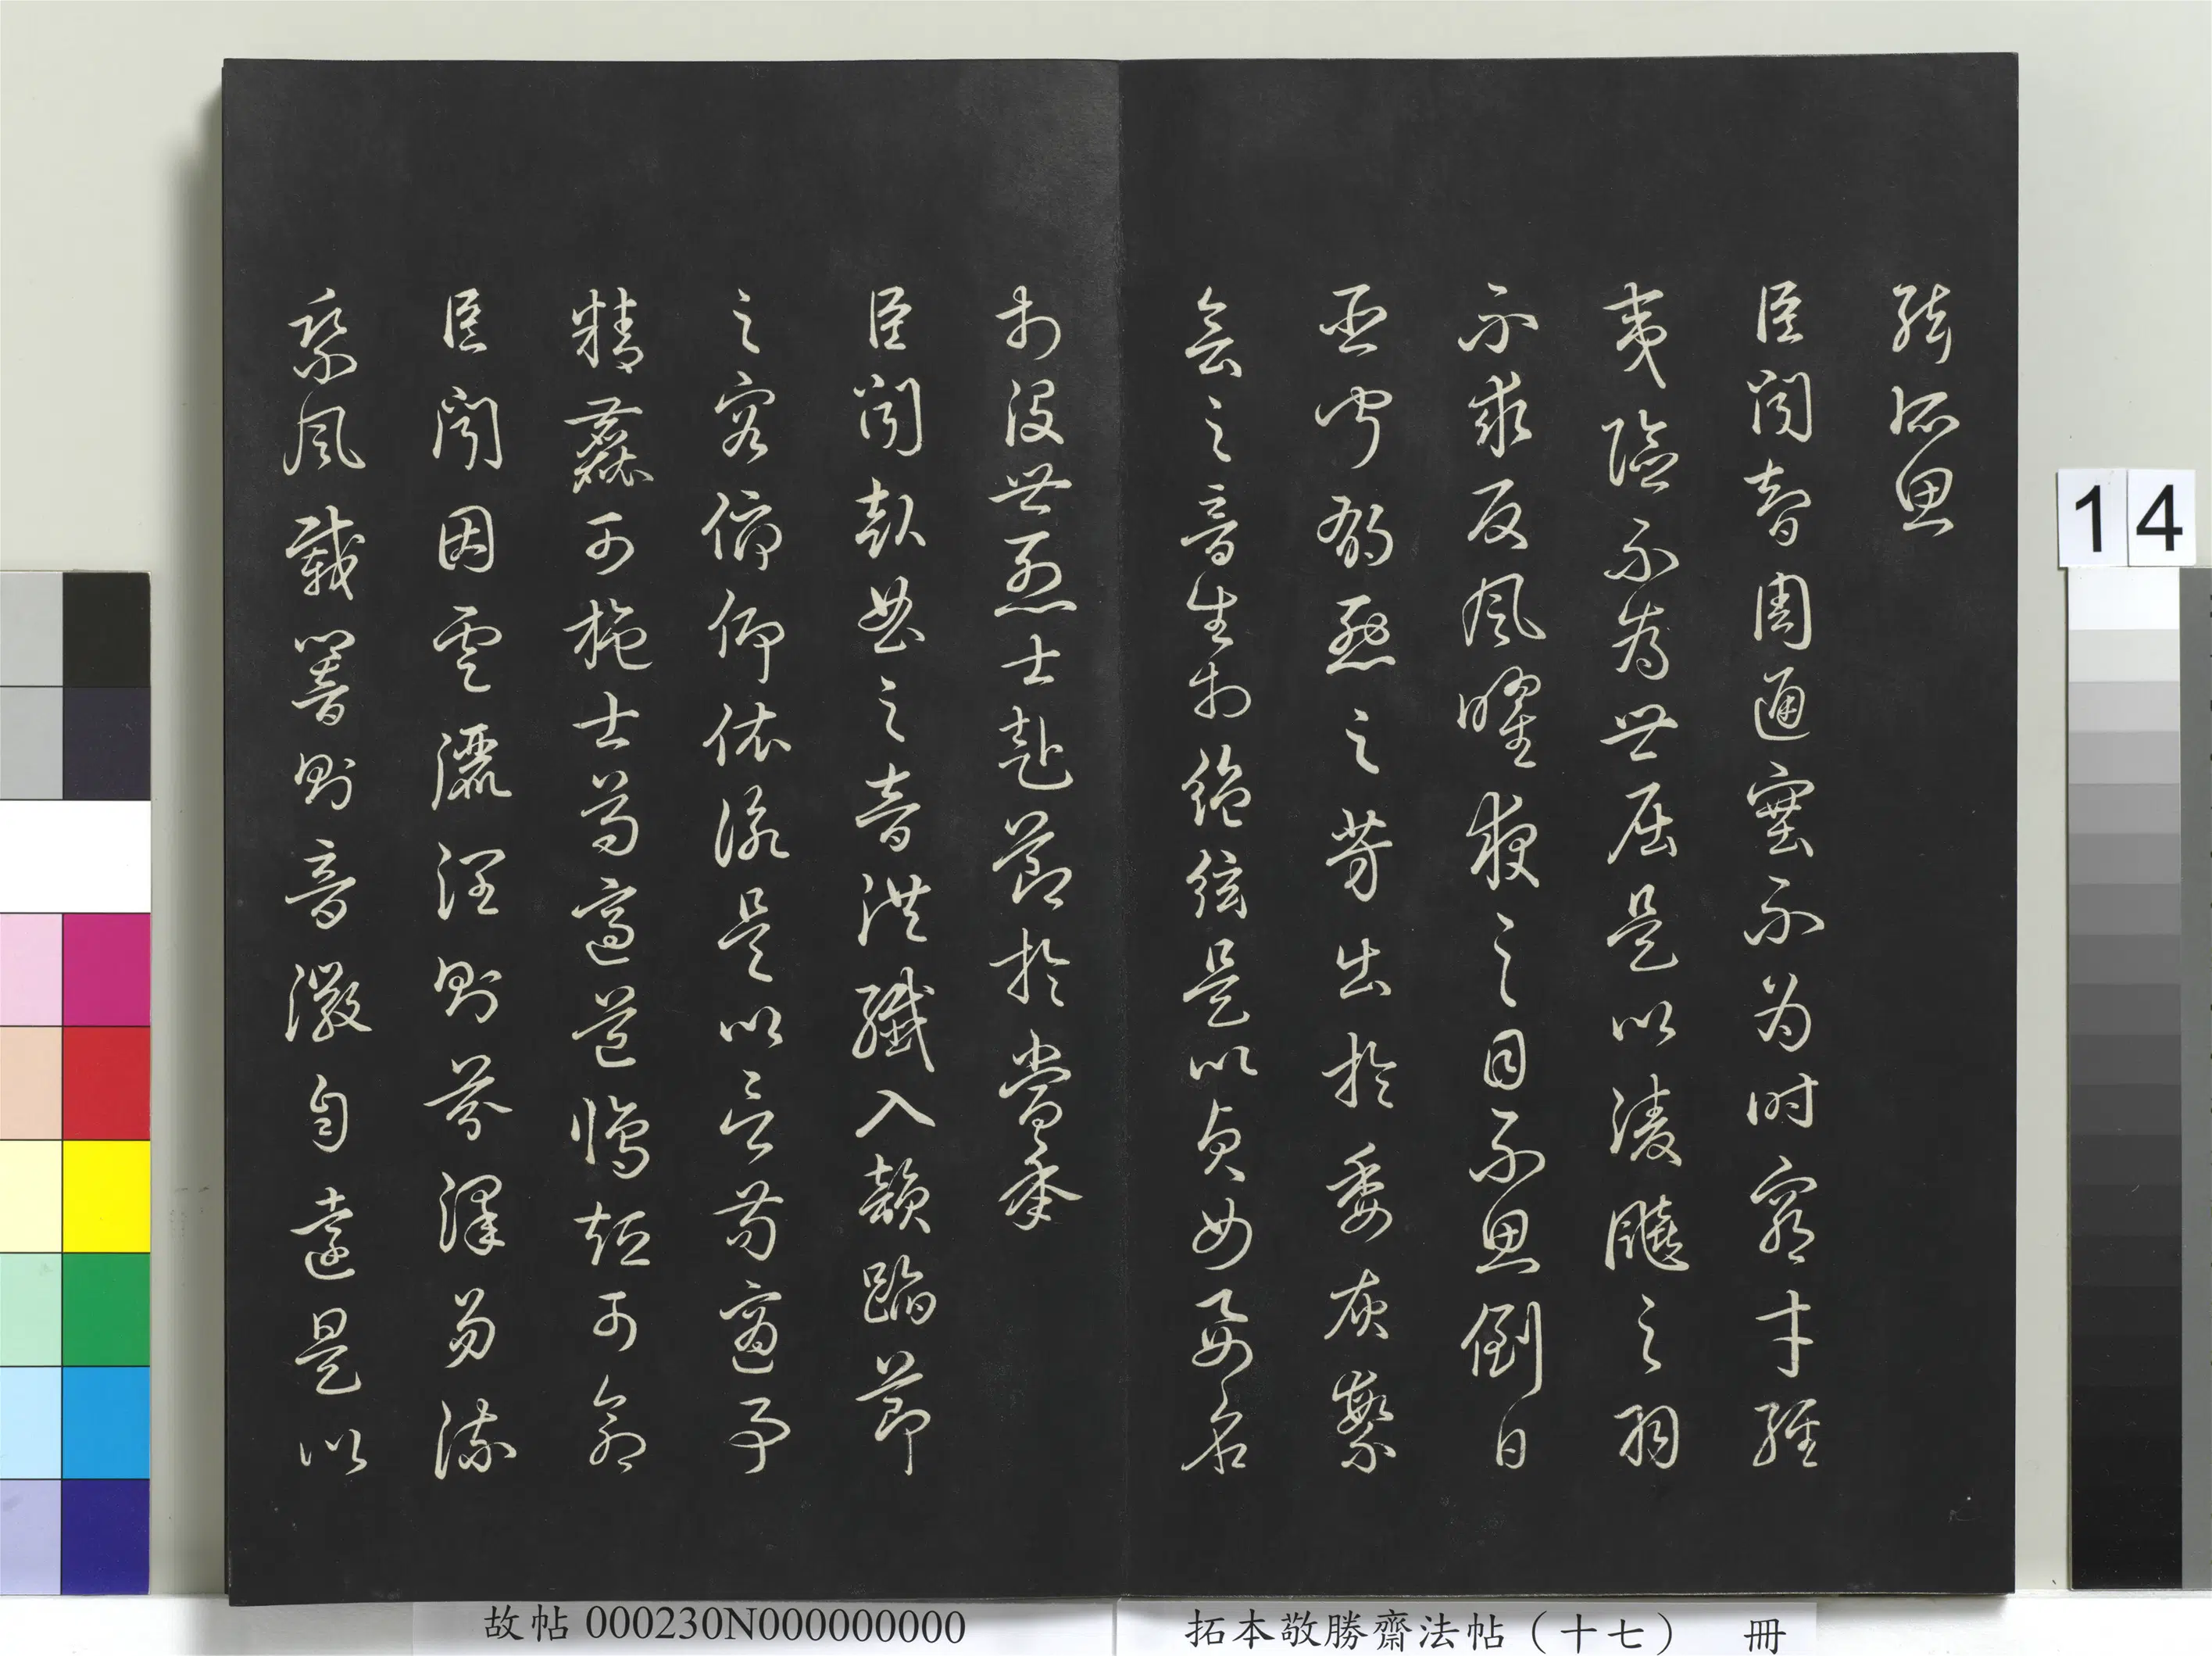 絃所思
臣聞智周通塞不为时窮才經
夷險不為世屈是以凌飆之羽
不求反風曜夜之目不思倒日
臣聞郁烈之芳出於委灰繁
會之音生於絕絃是以貞女要名
於沒世烈士赴節於當年
臣聞赴曲之音洪纖入韻蹈節
之容俯仰依詠是以言苟適事
精麤可施士苟適道脩短可命
臣聞因雲灑潤則芬澤易流
乘風載響則音徽自遠是以
14
故帖 000230N000000000
拓本敬勝齋法帖(十七) 冊